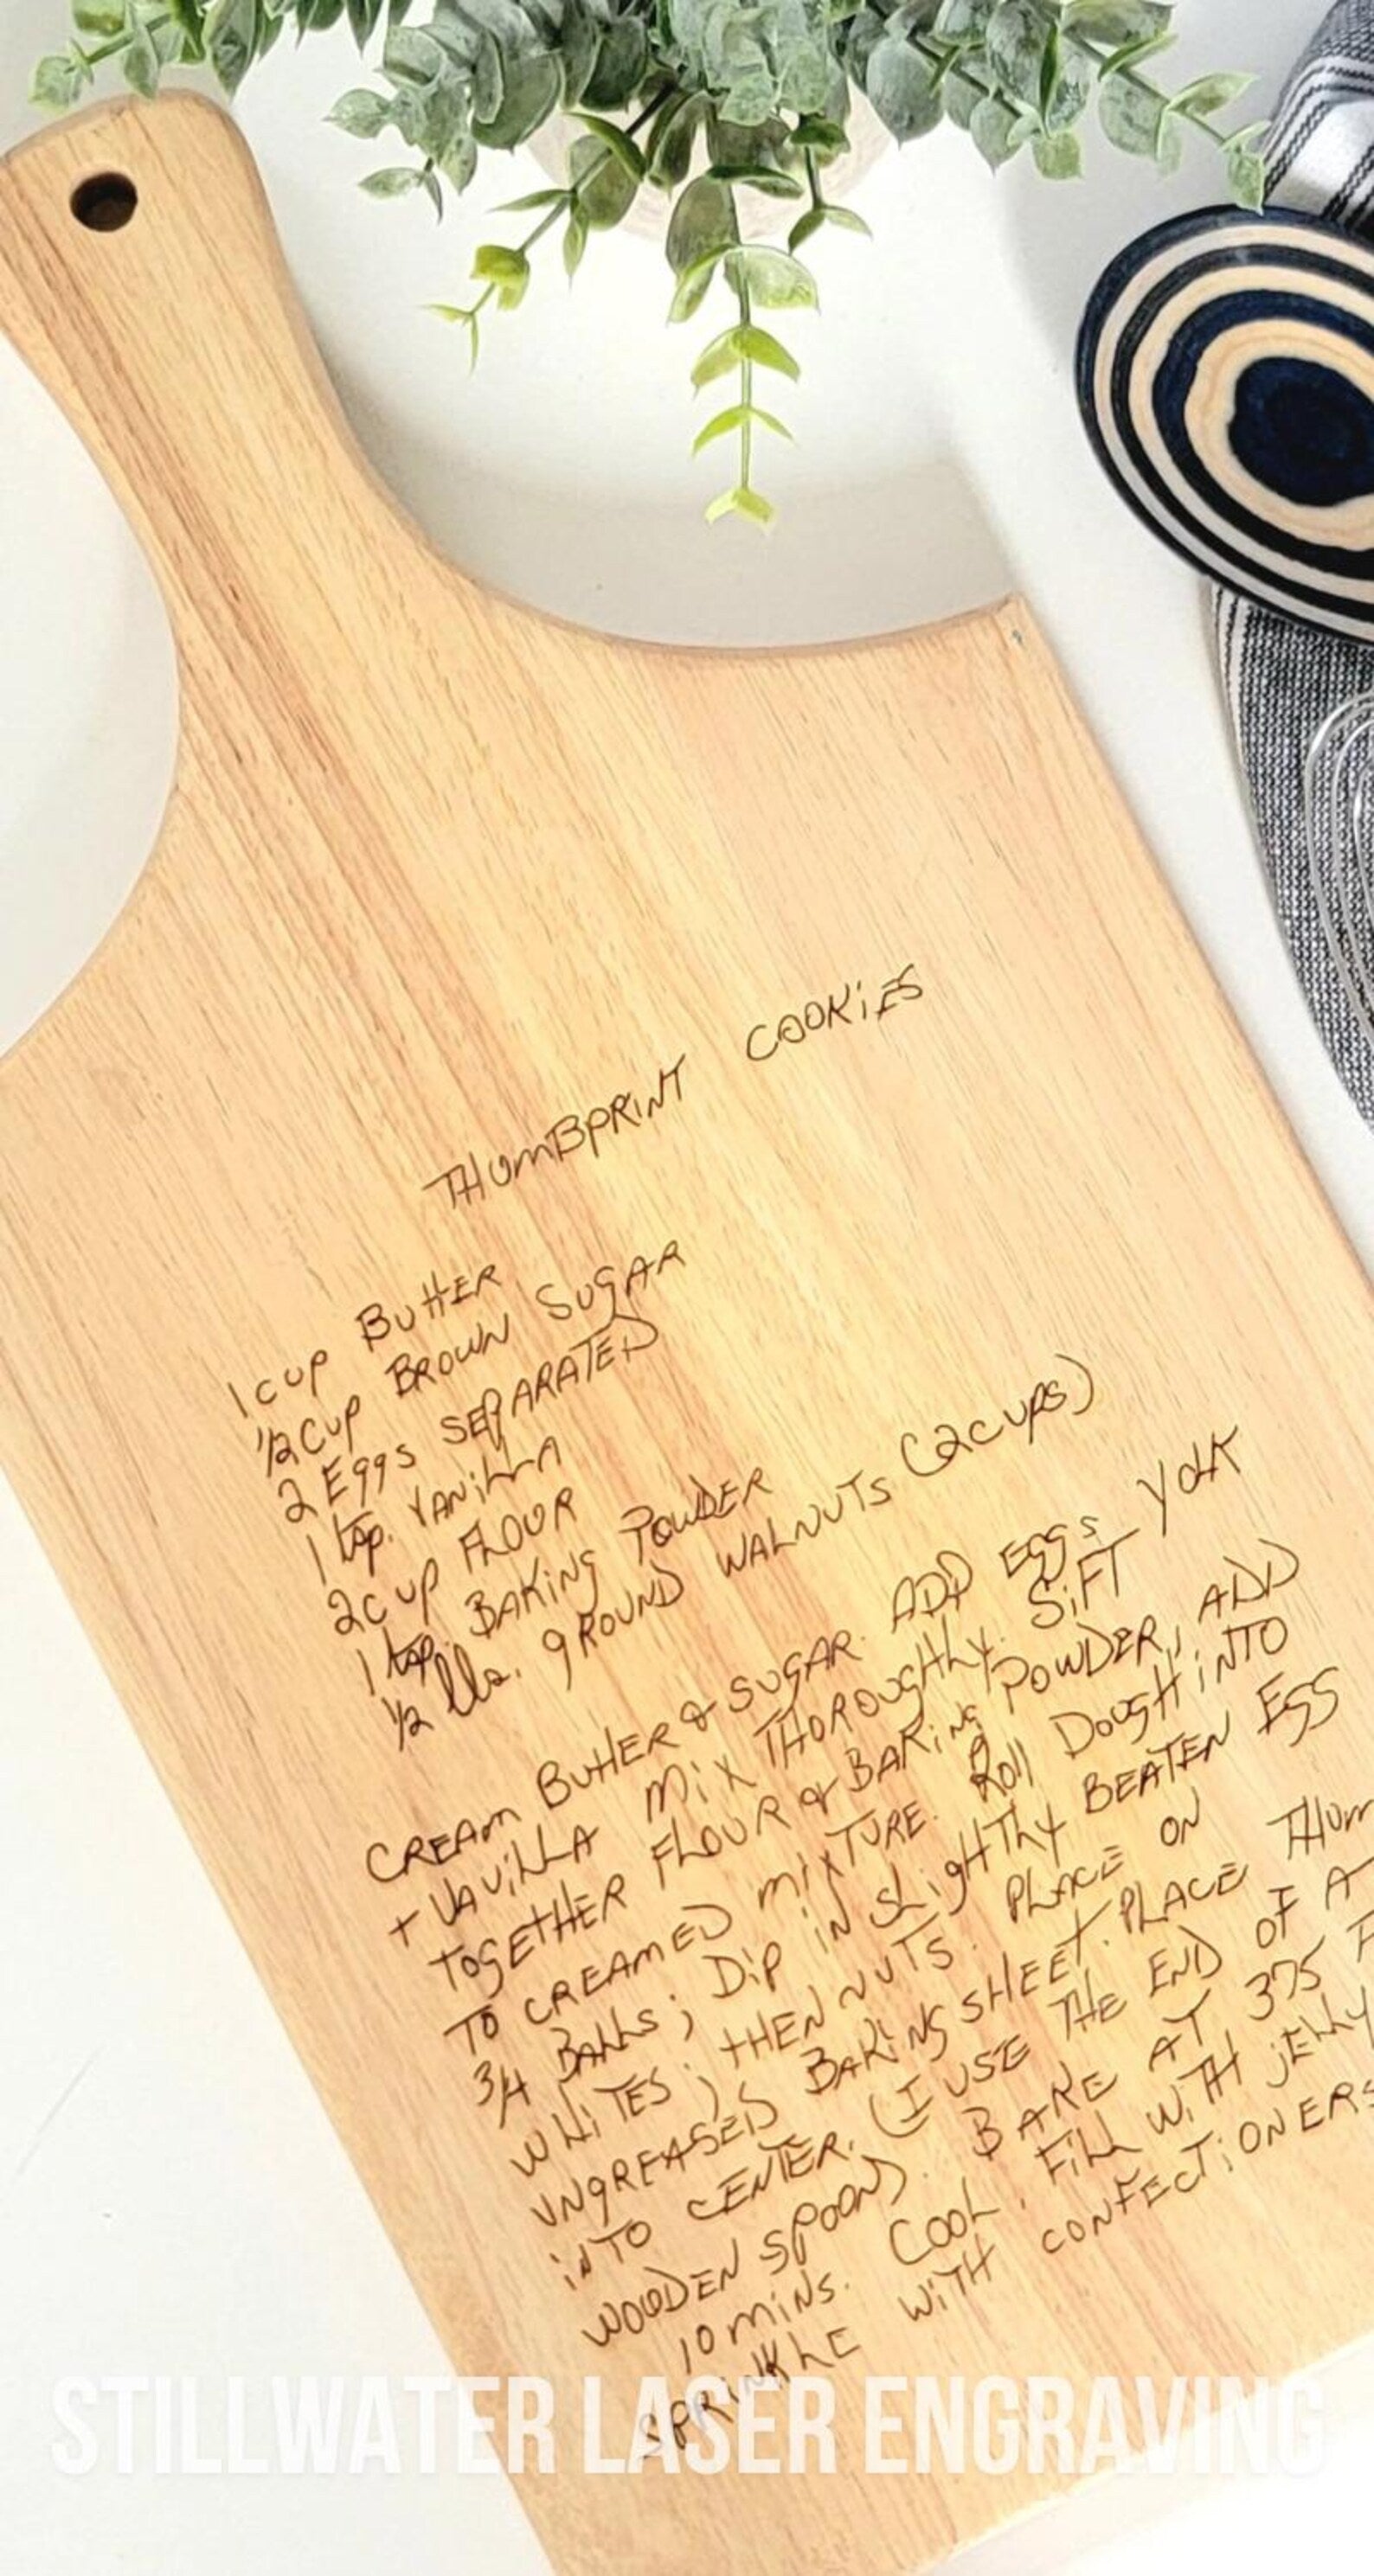 THUMBPRINT COOKIES
1 CUP BUTTER
1/2 CUP BROWN SUGAR
2 EggS SEPARATED
1 tsp. VANiLLA
2 CUP FLOUR
1 tsp. BAKiNg POWDER
1/2 lbs. gROUND WALNUTS (2 CUPS)
CREAM BUTTER & SUGAR. ADD EGGS YOLK
+ VAViLLA MiX THOROUGHLY. SiFT
TOGETHER FLOUR & BAKiNg POWDER, ADD
TO CREAMED MiXTURE. Roll DOUGH iNTO
3/4 BALLS; DiP iN SLigHTLY BEATEN EGG
WHiTES; tHEN NUTS. PLACE ON
UNgREASED BAKiNG SHEET. PLACE THUM
iNTO CENTER. (I USE THE END OF A
WOODEN SPOON). BAKE AT 375 F
10 MiNS. COOL. FiLL WiTH jELLY
SPRiNKLE WiTH CONFECTiONERS
STILLWATER LASER ENGRAVING